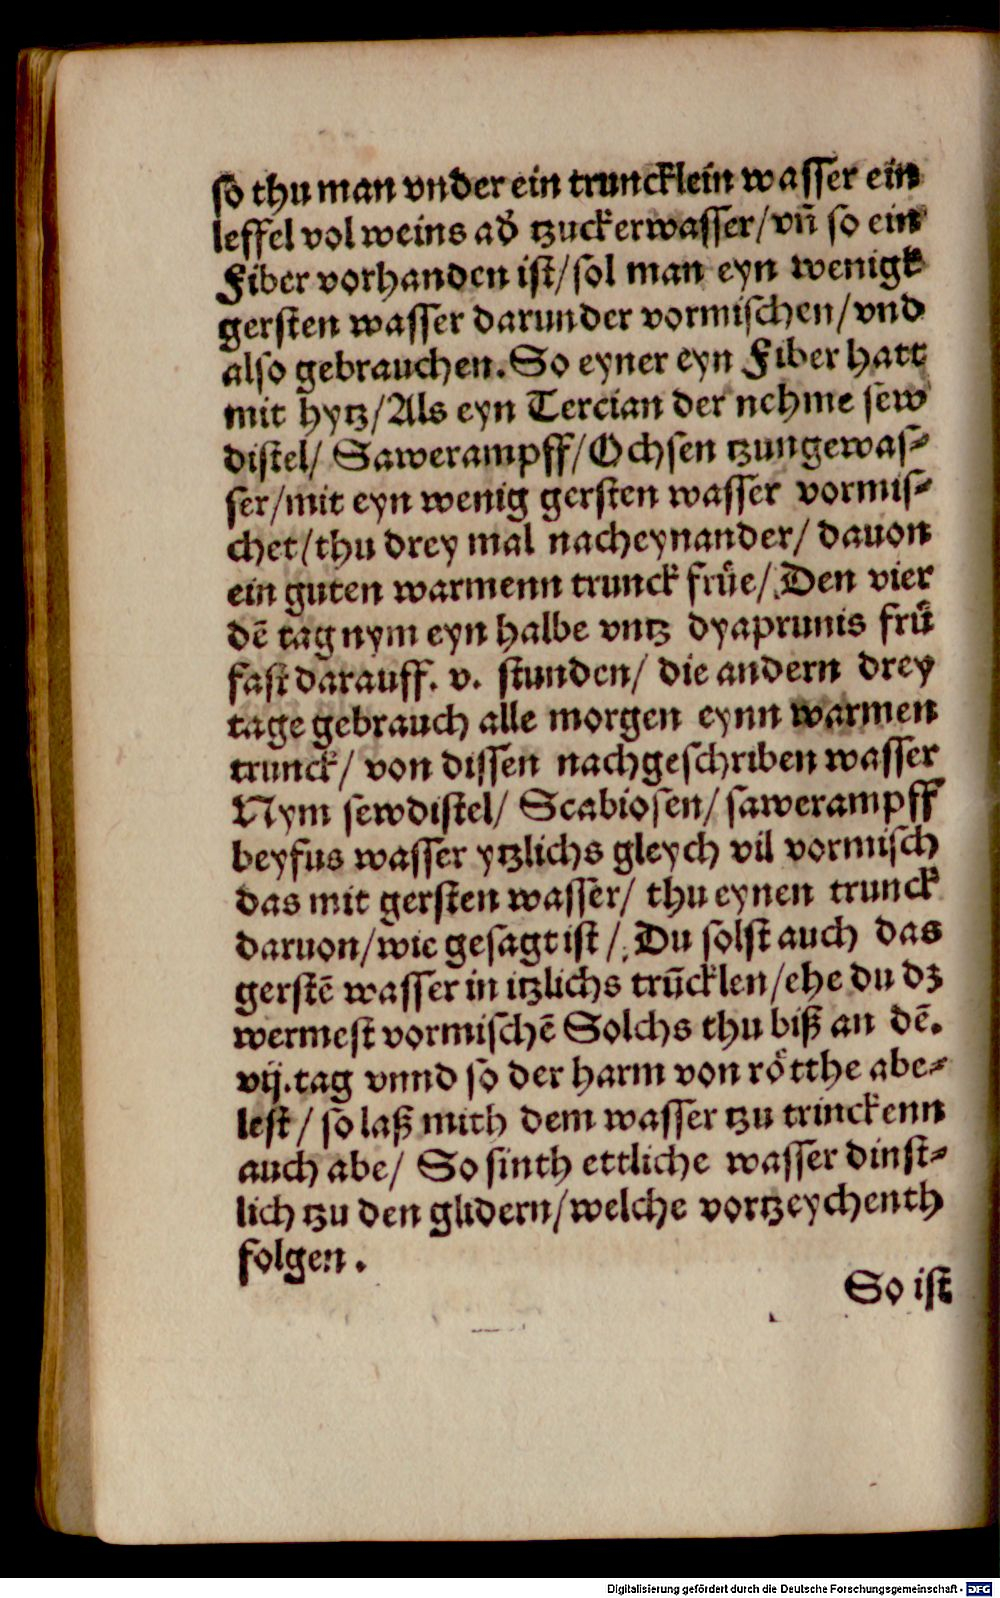 so thu man vnder ein truncklein wasser ein
leffel vol weins ad᷑ tzuckerwasser/ vn̄ so ein
Fiber vorhanden ist/ sol man eyn wenigk
gersten wasser darunder vormischen/ vnd
also gebrauchen. So eyner eyn Fiber hatt
mit hytz/ Als eyn Tercian der nehme sew
distel/ Sawerampff/ Ochsen tzungewas⸗
ser/ mit eyn wenig gersten wasser vormis⸗
chet/ thu drey mal nacheynander/ dauon
ein guten warmenn trunck frůe/ Den vier
dē tag nym eyn halbe vntz dyaprunis frů
fast darauff. v. stunden/ die andern drey
tage gebrauch alle morgen eynn warmen
trunck/ von dissen nachgeschriben wasser
Nym sewdistel/ Scabiosen/ sawerampff
beyfus wasser ytzlichs gleych vil vormisch
das mit gersten wasser/ thu eynen trunck
daruon/ wie gesagt ist/ Du solst auch das
gerstē wasser in itzlichs trūcklen/ ehe du dz
wermest vormischē Solchs thu biß an dē.
vij. tag vnnd so der harm von rötthe abe⸗
lest/ so laß mith dem wasser tzu trinckenn
auch abe/ So sinth ettliche wasser dinst⸗
lich tzu den glidern/ welche vortzeychenth
folgen.
So ist
Digitalisierung gefördert durch die Deutsche Forschungsgemeinschaft - DFG